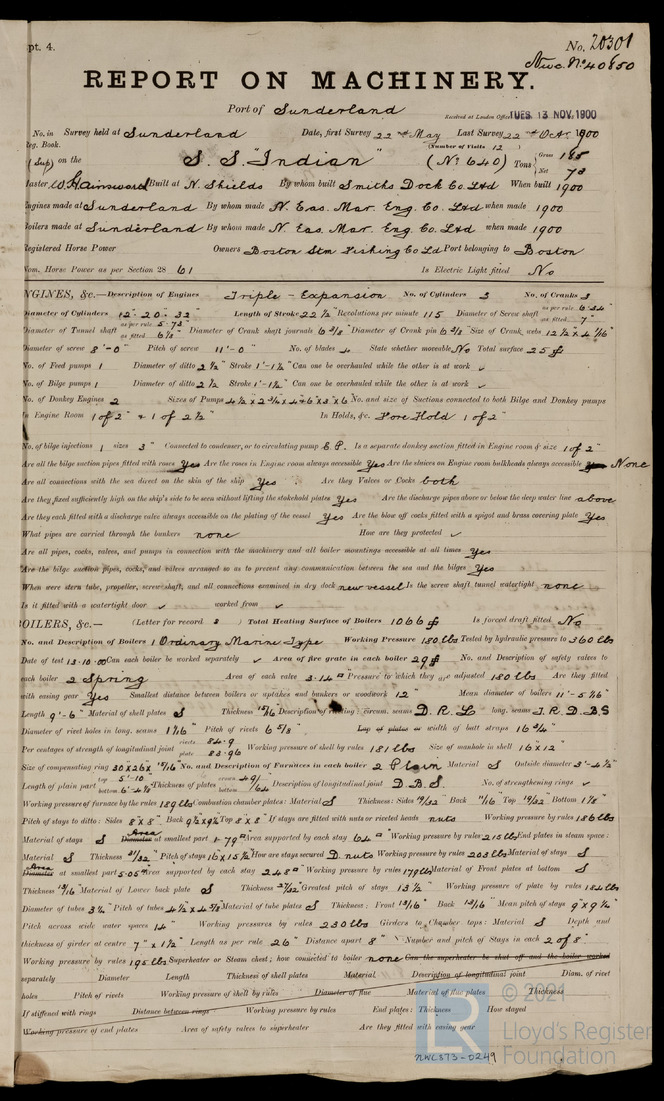 pt. 4. No. 20301
Nwc. No 40850
REPORT ON MACHINERY.
Port of Sunderland
Received at London Office TUES. 13 NOV, 1900
No. in Survey held at Sunderland Date, first Survey 22nd May Last Survey 22nd Oct 1900
Reg. Book. (Number of Visits 12)
(Sup) on the S. S. "Indian" (No 640) Tons Gross 185
Net 73
Master W. Hainsworth Built at N. Shields By whom built Smiths Dock Co. Ltd When built 1900
Engines made at Sunderland By whom made N. Eas. Mar. Eng. Co. Ltd when made 1900
Boilers made at Sunderland By whom made N. Eas. Mar. Eng. Co. Ltd when made 1900
Registered Horse Power Owners Boston Stm Fishing Co Ld Port belonging to Boston
Nom. Horse Power as per Section 28 61 Is Electric Light fitted No
ENGINES, &c.—Description of Engines Triple - Expansion No. of Cylinders 3 No. of Cranks 3
Diameter of Cylinders 12 - 20 - 32" Length of Stroke 22 1/2 Revolutions per minute 115 Diameter of Screw shaft as per rule 6.34 as fitted 7"
Diameter of Tunnel shaft as per rule 5.73 as fitted 6 1/8" Diameter of Crank shaft journals 6 3/8" Diameter of Crank pin 6 3/8" Size of Crank webs 12 1/2 x 4 1/16"
Diameter of screw 8'-0" Pitch of screw 11'-0" No. of blades 4 State whether moveable No Total surface 25 ft
No. of Feed pumps 1 Diameter of ditto 2 1/2 Stroke 1'-1 1/2" Can one be overhauled while the other is at work ✓
No. of Bilge pumps 1 Diameter of ditto 2 1/2 Stroke 1'-1 1/2" Can one be overhauled while the other is at work ✓
No. of Donkey Engines 2 Sizes of Pumps 4 1/2 x 2 3/4 x 4 & 6 x 3 x 6 No. and size of Suctions connected to both Bilge and Donkey pumps
In Engine Room 1 of 2" & 1 of 2 1/2" In Holds, &c. Fore Hold 1 of 2"
No. of bilge injections 1 sizes 3" Connected to condenser, or to circulating pump C.P. Is a separate donkey suction fitted in Engine room & size 1 of 2"
Are all the bilge suction pipes fitted with roses Yes Are the roses in Engine room always accessible Yes Are the sluices on Engine room bulkheads always accessible None
Are all connections with the sea direct on the skin of the ship Yes Are they Valves or Cocks both
Are they fixed sufficiently high on the ship's side to be seen without lifting the stokehold plates Yes Are the discharge pipes above or below the deep water line above
Are they each fitted with a discharge valve always accessible on the plating of the vessel Yes Are the blow off cocks fitted with a spigot and brass covering plate Yes
What pipes are carried through the bunkers none How are they protected ✓
Are all pipes, cocks, valves, and pumps in connection with the machinery and all boiler mountings accessible at all times Yes
Are the bilge suction pipes, cocks, and valves arranged so as to prevent any communication between the sea and the bilges Yes
When were stern tube, propeller, screw shaft, and all connections examined in dry dock new vessel Is the screw shaft tunnel watertight none
Is it fitted with a watertight door ✓ worked from ✓
BOILERS, &c.— (Letter for record S) Total Heating Surface of Boilers 1066 ft Is forced draft fitted No
No. and Description of Boilers 1 Ordinary Marine Type Working Pressure 180 lbs Tested by hydraulic pressure to 360 lbs
Date of test 13.10.00 Can each boiler be worked separately ✓ Area of fire grate in each boiler 29 ft No. and Description of safety valves to
each boiler 2 Spring Area of each valve 3.14 Pressure to which they are adjusted 180 lbs Are they fitted
with easing gear Yes Smallest distance between boilers or uptakes and bunkers or woodwork 12" Mean diameter of boilers 11'-5 7/16"
Length 9'-6" Material of shell plates S Thickness 15/16 Description of riveting: circum. seams D.R.L long. seams T.R.D.B.S
Diameter of rivet holes in long. seams 1 1/16 Pitch of rivets 6 5/8" Lap of plates or width of butt straps 16 3/4"
Per centages of strength of longitudinal joint rivets 84.9 plate 83.96 Working pressure of shell by rules 181 lbs Size of manhole in shell 16 x 12"
Size of compensating ring 30 x 26 x 15/16 No. and Description of Furnaces in each boiler 2 Plain Material S Outside diameter 3'-4 1/2"
Length of plain part top 5'-10" bottom 6'-4 1/8 Thickness of plates crown bottom 49/64 Description of longitudinal joint D.B.S. No. of strengthening rings ✓
Working pressure of furnace by the rules 189 lbs Combustion chamber plates: Material S Thickness: Sides 19/32 Back 11/16 Top 19/32 Bottom 1 1/8
Pitch of stays to ditto: Sides 8 x 8" Back 9 1/2 x 9 1/2 Top 8 x 8" If stays are fitted with nuts or riveted heads nuts Working pressure by rules 186 lbs
Material of stays S Area Diameter at smallest part 1.79 Area supported by each stay 64 Working pressure by rules 215 lbs End plates in steam space:
Material S Thickness 31/32 Pitch of stays 16 x 15 1/2 How are stays secured D. nuts Working pressure by rules 203 lbs Material of stays S
Area Diameter at smallest part 5.05 Area supported by each stay 248 Working pressure by rules 179 lbs Material of Front plates at bottom S
Thickness 13/16 Material of Lower back plate S Thickness 27/32 Greatest pitch of stays 13 1/2 Working pressure of plate by rules 184 lbs
Diameter of tubes 3 1/4 Pitch of tubes 4 1/2 x 4 3/8 Material of tube plates S Thickness: Front 13/16 Back 13/16 Mean pitch of stays 9 x 9 1/2
Pitch across wide water spaces 14" Working pressures by rules 230 lbs Girders to Chamber tops: Material S Depth and
thickness of girder at centre 7" x 1 1/2" Length as per rule 26" Distance apart 8" Number and pitch of Stays in each 2 of 8"
Working pressure by rules 195 lbs Superheater or Steam chest; how connected to boiler none Can the superheater be shut off and the boiler worked
separately Diameter Length Thickness of shell plates Material Description of longitudinal joint Diam. of rivet
holes Pitch of rivets Working pressure of shell by rules Diameter of flue Material of flue plates Thickness
If stiffened with rings Distance between rings Working pressure by rules End plates: Thickness How stayed
Working pressure of end plates Area of safety valves to superheater Are they fitted with easing gear
© 2021
LR Lloyd's Register
Foundation
NWC373-0249